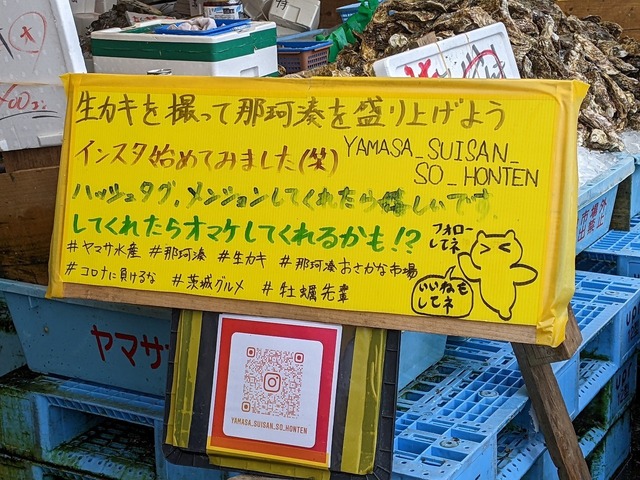 生カキを撮って那珂湊を盛り上げよう
インスタ始めてみました(笑)
YAMASA_SUISAN_
SO_HONTEN
ハッシュタグ,メンションしてくれたら嬉しいです.
してくれたらオマケしてくれるかも!?
#ヤマサ水産 #那珂湊 #生カキ #那珂湊おさかな市場
#コロナに負けるな #茨城グルメ #牡蠣先輩
フォロー
してネ
いいねも
してネ
ヤマサ
YAMASA_SUISAN_SO_HONTEN